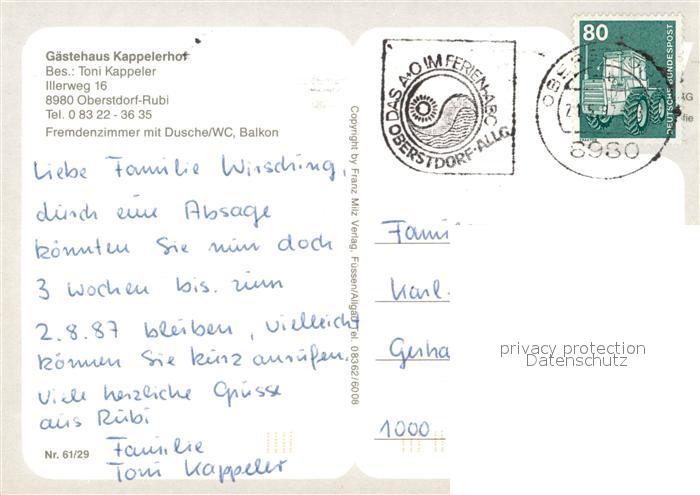 Gästehaus Kappelerhof
Bes.: Toni Kappeler
Illerweg 16
8980 Oberstdorf-Rubi
Tel. 0 83 22 - 36 35
Fremdenzimmer mit Dusche/WC, Balkon
Liebe Familie Wirsching,
durch eine Absage
könnten Sie nun doch
3 Wochen bis zum
2.8.87 bleiben, vielleicht
können Sie kurz anrufen.
Viele herzliche Grüsse
aus Rubi
Familie
Toni Kappeler
Nr. 61/29
Copyright by Franz Milz Verlag, Füssen/Allgäu Tel. 08362/6008
DAS A+O IM FERIEN-ABC
OBERSTDORF·ALLG.
8980
80
DEUTSCHE BUNDESPOST
Fami
Karl.
Gerha
1000
privacy protection
Datenschutz